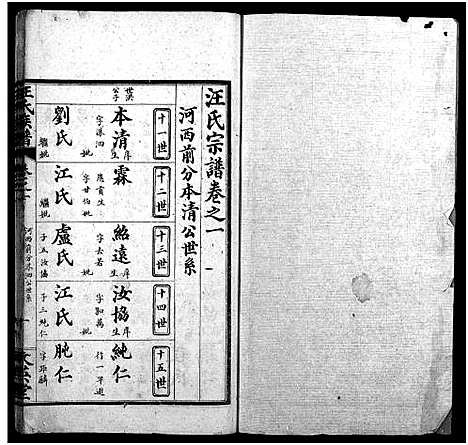 汪氏宗譜卷之一
河西前分本清公世系
十一世
本清
生
字漾泗
妣
劉氏
繼妣
十二世
霖
庠貢生
字甘伯妣
江氏
繼妣
十三世
紹遠
庠生
盧氏
十四世
汝協
庠生
字和萬
江氏
子三純仁
十五世
純仁
肫仁
汪氏族譜
河西前分本清公世系